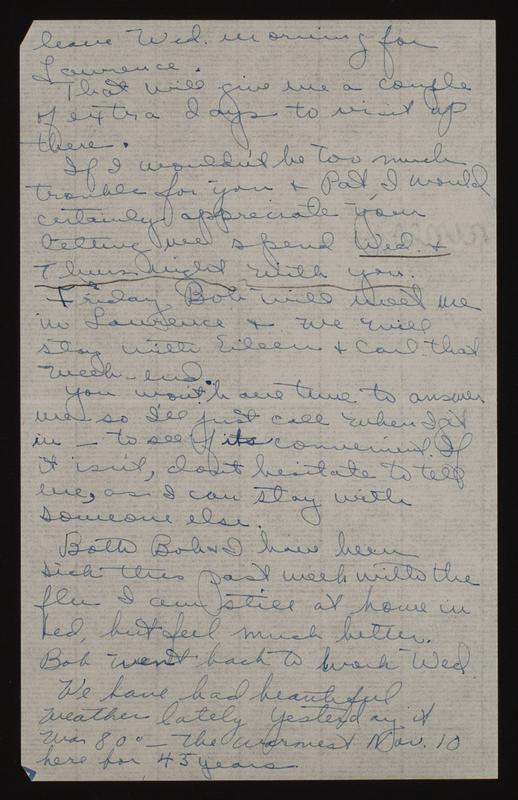 leave Wed. morning for
Lawrence.
That will give me a couple
of extra days to visit up
there.
If I wouldn't be too much
trouble for you & Pat I would
certainly appreciate your
letting me spend Wed. &
Thurs night with you.
Friday Bob will meet me
in Lawrence & we will
stay with Eileen & Carl that
week-end.
You won't have time to answer
me so I'll just call when I get
in — to see if its convenient. If
it isn't, don't hesitate to tell
me, as I can stay with
someone else.
Both Bob & I have been
sick this past week with the
flu I am still at home in
bed, but feel much better.
Bob went back to work Wed.
We have had beautiful
weather lately yesterday it
was 80° — the warmest Nov. 10
here for 45 years